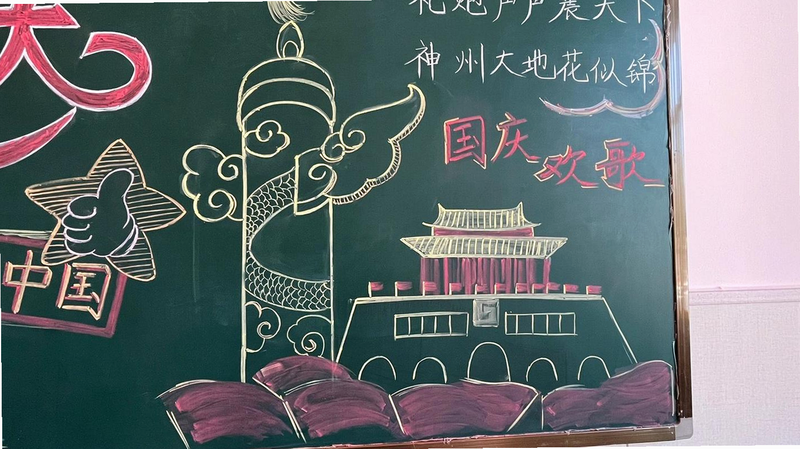 礼炮声声震天下
神州大地花似锦
国庆
欢歌
中国